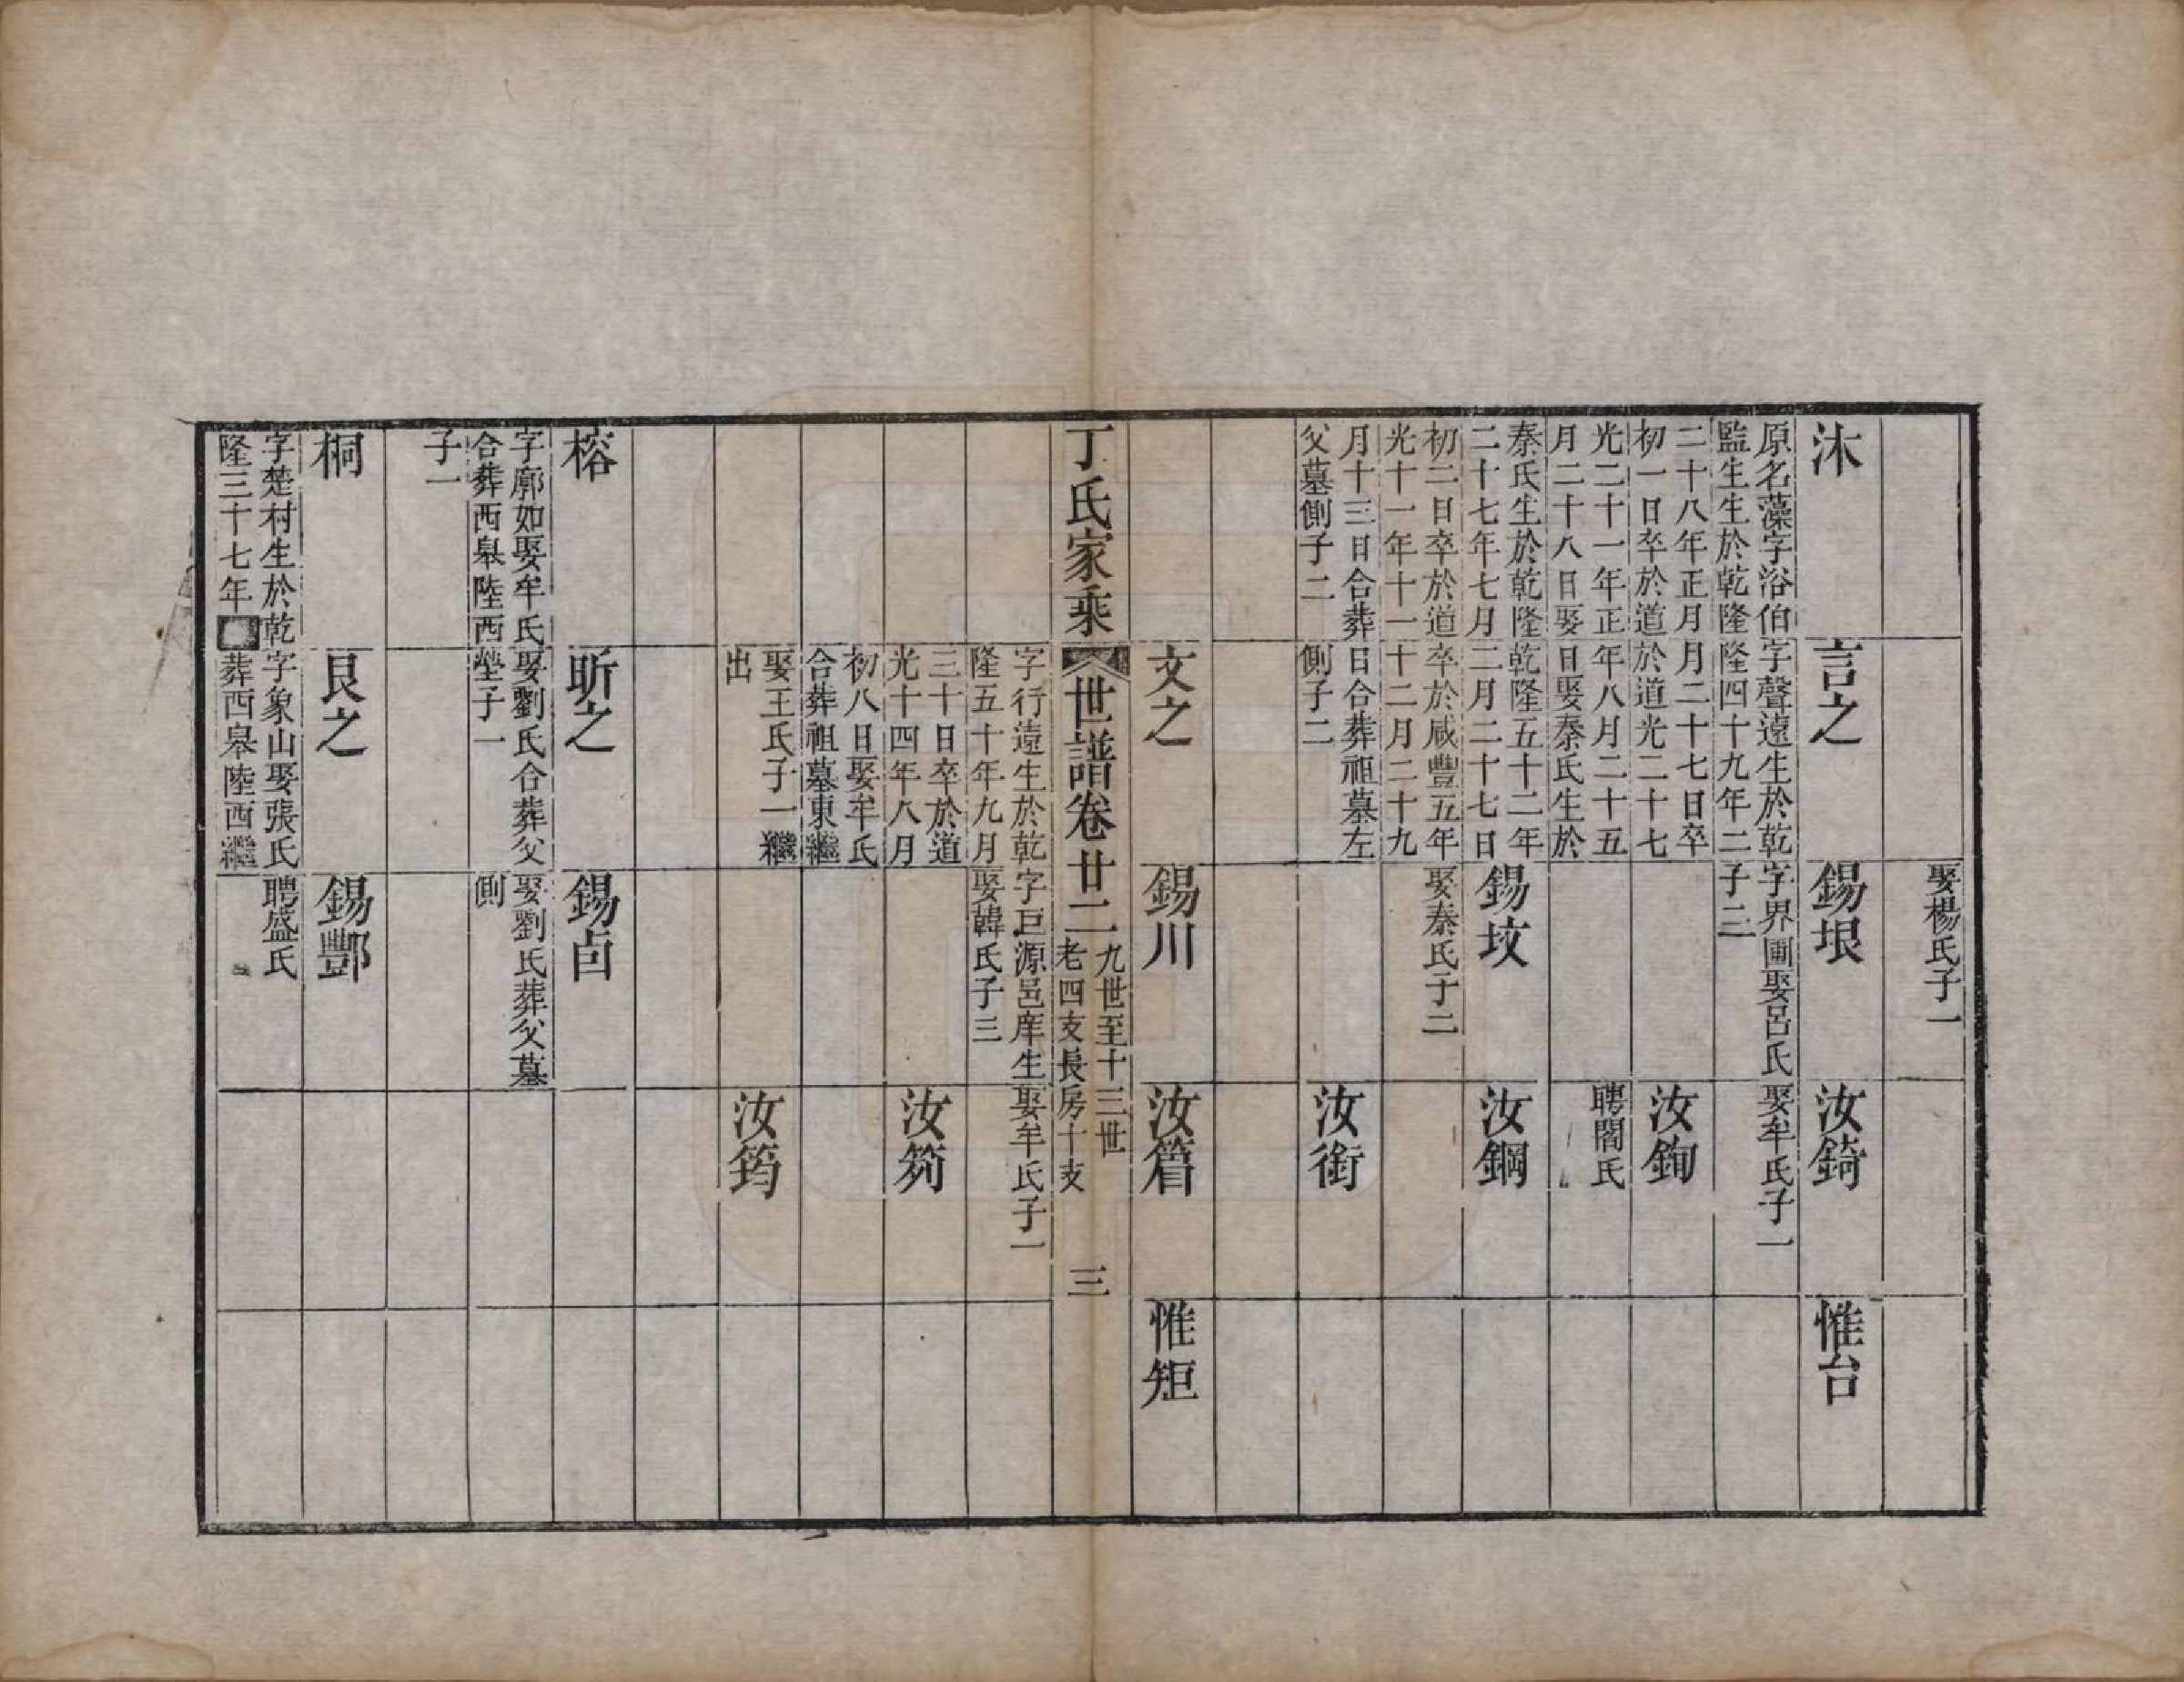 娶楊氏子一
沐
原名藻字浴伯
監生生於乾隆
二十八年正月
初一日卒於道
光二十一年正
月二十八日娶
秦氏生於乾隆
二十七年七月
初二日卒於道
光十一年十一
月十三日合葬
父墓側子二
言之
字聲遠生於乾
隆四十九年二
月二十七日卒
於道光二十七
年八月二十五
日娶秦氏生於
乾隆五十二年
二月二十七日
卒於咸豐五年
十二月二十九
日合葬祖墓左
側子二
錫垠
字界圃娶呂氏
子二
錫坟
娶秦氏子二
汝錡
娶牟氏子一
汝銁
聘閻氏
汝鋼
汝銜
惟台
文之
錫川
汝䈞
惟矩
丁氏家乘
世譜卷廿二
九世至十三世
老四支長房十支
三
字行遠生於乾
隆五十年九月
三十日卒於道
光十四年八月
初八日娶牟氏
合葬祖墓東繼
娶王氏子一繼
出
字巨源邑庠生
娶韓氏子三
娶牟氏子一
汝筍
汝筠
榕
字廓如娶牟氏
合葬西皋陸西
子一
昕之
娶劉氏合葬父
塋子一
錫卣
娶劉氏葬父墓
側
桐
字楚村生於乾
隆三十七年
艮之
字象山娶張氏
葬西皋陸西繼
錫酆
聘盛氏